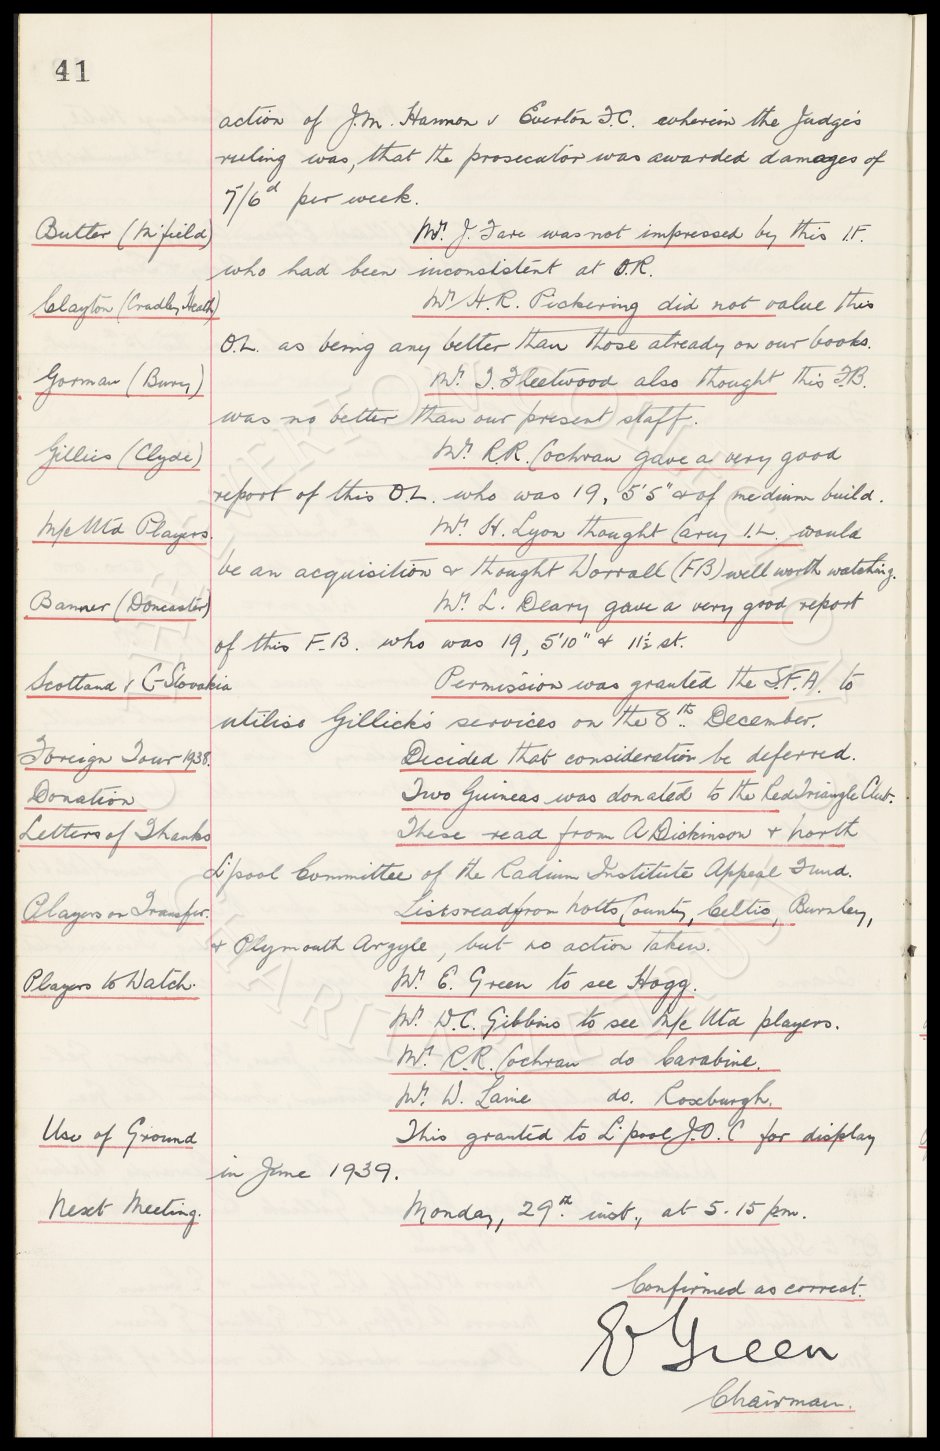 41
action of J.M. Harmon v Everton F.C. wherein the Judge's
ruling was, that the prosecutor was awarded damages of
7/6d per week.
Butter (M'field) Mr. J. Fare was not impressed by this I.F.
who had been inconsistent at O.R.
Clayton (Cradley Heath) Mr. H.R. Pickering did not value this
O.L. as being any better than those already on our books.
Gorman (Bury) Mr. T. Fleetwood also thought this F.B.
was no better than our present staff.
Gillies (Clyde) Mr. R.R. Cochran gave a very good
report of this O.L. who was 19, 5'5" & of medium build.
M/c Utd Players. Mr. H. Lyon thought Carey I.L. would
be an acquisition & thought Worrall (FB) well worth watching.
Banner (Doncaster) Mr. L. Deary gave a very good report
of this F.B. who was 19, 5'10" & 11½ st.
Scotland v C-Slovakia Permission was granted the S.F.A. to
utilise Gillick's services on the 8th. December.
Foreign Tour 1938. Decided that consideration be deferred.
Donation Two Guineas was donated to the Red Triangle Club.
Letters of Thanks These read from A Dickinson & North
L'pool Committee of the Radium Institute Appeal Fund.
Players on Transfer. Lists read from Notts County, Celtic, Burnley,
& Plymouth Argyle, but no action taken.
Players to Watch. Mr. E. Green to see Hogg.
Mr. W.C. Gibbins to see M/c Utd players.
Mr. R.R. Cochran do Carabine.
Mr. W. Laine do. Roxburgh.
Use of Ground This granted to L'pool J.O.C for display
in June 1939.
Next Meeting. Monday, 29th. inst., at 5.15 pm.
Confirmed as correct.
E Green
Chairman.